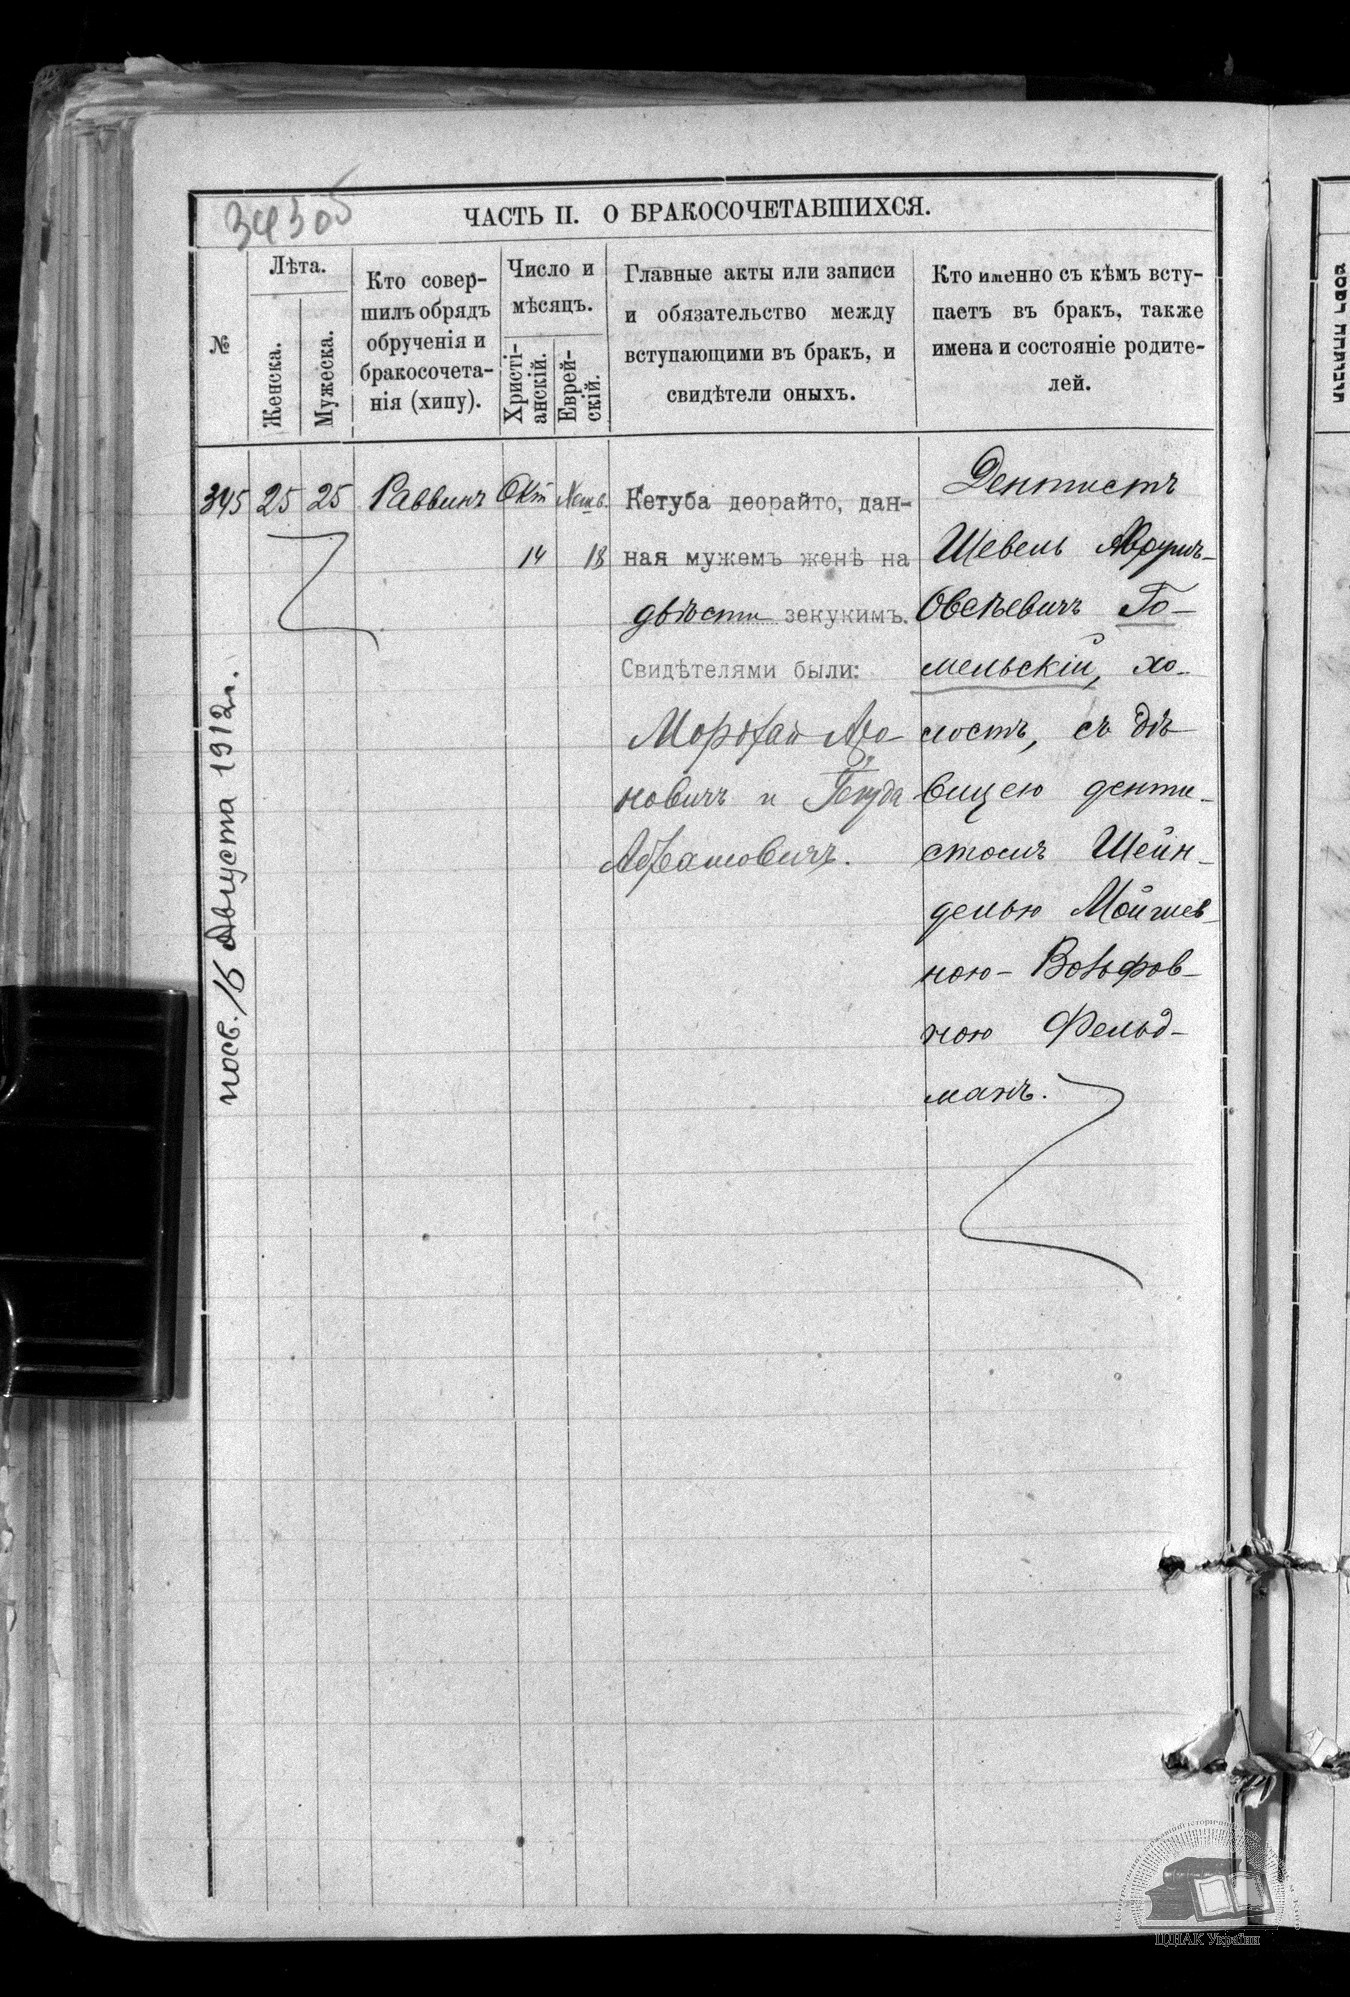 343об
ЧАСТЬ II. О БРАКОСОЧЕТАВШИХСЯ.
№
Лѣта.
Женска.
Мужеска.
Кто совер-
шилъ обрядъ
обрученія и
бракосочета-
нія (хипу).
Число и
мѣсяцъ.
Христі-
анскій.
Еврей-
скій.
Главные акты или записи
и обязательство между
вступающими въ бракъ, и
свидѣтели оныхъ.
Кто именно съ кѣмъ всту-
паетъ въ бракъ, также
имена и состояніе родите-
лей.
345
25
25
Раввинъ
Окт
14
Хешв.
18
Кетуба деорайто, дан-
ная мужемъ женѣ на
двѣсти зекукимъ.
Свидѣтелями были:
Мордхай Аро-
новичъ и Іегуда
Абрамовичъ.
Дентистъ
Шевель Аврумъ-
Овсѣевичъ Го-
мельскій, хо-
лостъ, съ дѣ-
вицею денти-
стомъ Шейн-
делью Мойшев-
ною-Вольфов-
ною Фельд-
манъ.
посв. 16 Августа 1912 г.
ЦДІАК України